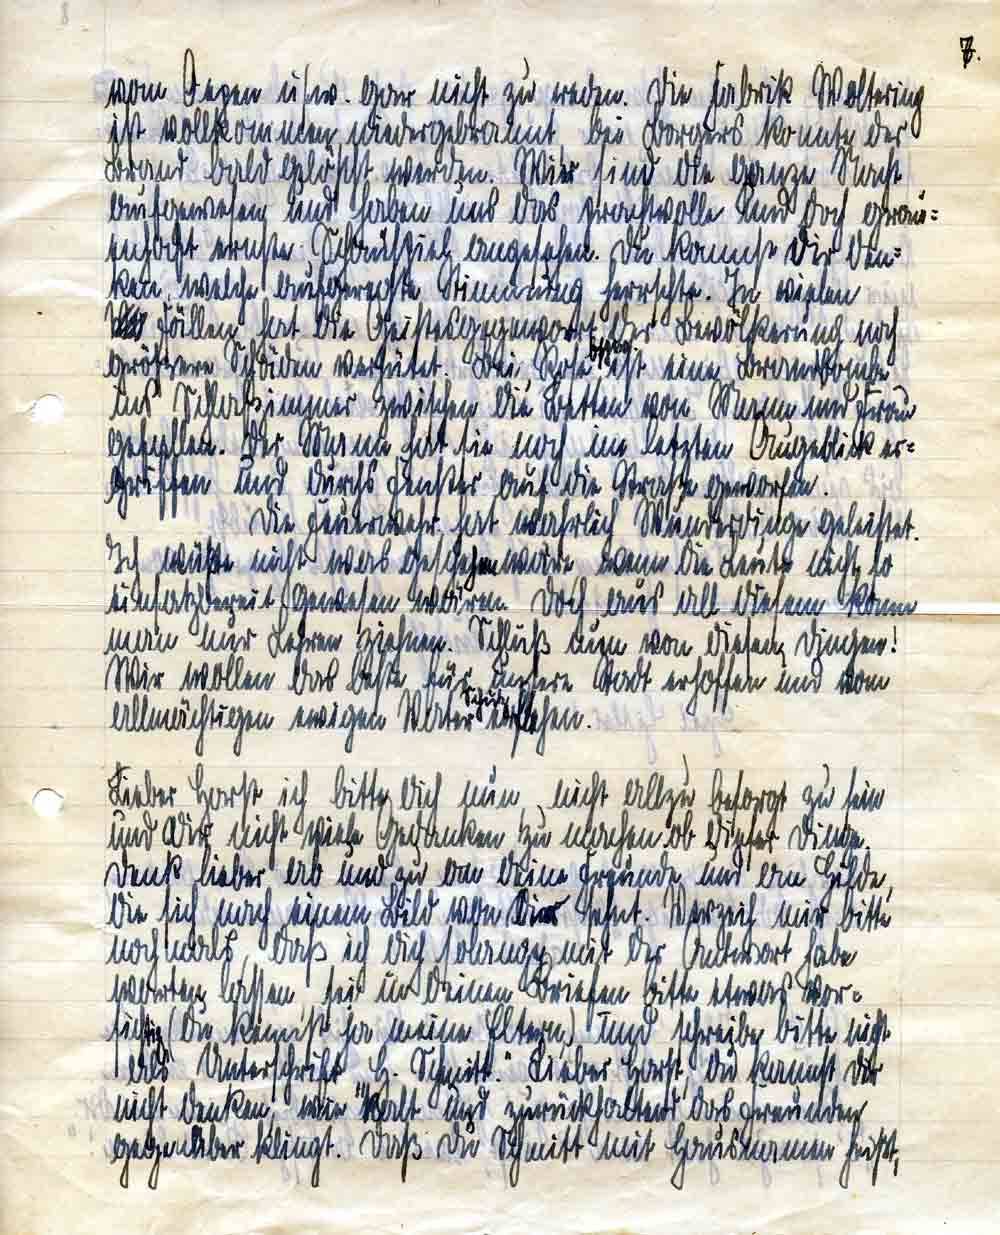 7.
vom Degen usw. gar nicht zu reden. Die Fabrik Woltering
ist vollkommen niedergebrannt bei Borgers konnte der
Brand bald gelöscht werden. Wir sind die ganze Nacht
aufgewesen und haben uns das prachtvolle und doch grau=
enhaft ernste Schauspiel angesehen. Du kannst Dir den=
ken, welche aufgeregte Stimmung herrschte. In vielen
Fällen hat die Geistesgegenwart der Bevölkerung noch
grössere Schäden verhütet. Bei Rose ist eine Brandbombe
ins Schlafzimmer zwischen die Betten von Mann und Frau
gefallen. Der Mann hat sie noch im letzten Augeblick er=
griffen und durchs Fenster auf die Straße geworfen.
Die Feuerwehr hat wahrlich Wunderdinge geleistet.
Ich wüßte nicht was geschehen wäre wenn die Leute nicht so
einsatzbereit gewesen wären. Doch aus all diesem kann
man nur Lehren ziehen. Schluß nun von diesen Dingen!
Wir wollen das beste für unsere Stadt erhoffen und vom
allmächtigen ewigen Vater Schutz erflehen.
Lieber Horst ich bitte dich nun, nicht allzu besorgt zu sein
und Dir nicht viele Gedanken zu machen ob dieser Dinge.
Denk lieber ab und zu an deine Freunde und an Hilde,
die sich nach einem Bild von Dir sehnt. Verzeih mir bitte
nochmals, daß ich dich solange mit der Antwort habe
warten lassen sei in deinen Briefen bitte etwas vor=
sichtig (du kennst ja meine Eltern) und schreibe bitte nicht
als Unterschrift „H. Schmitt." Lieber Horst, du kannst dir
nicht denken, wie kalt und zurückhaltend das Freunden
gegenüber klingt. Daß du Schmitt mit Hausnamen heißt,